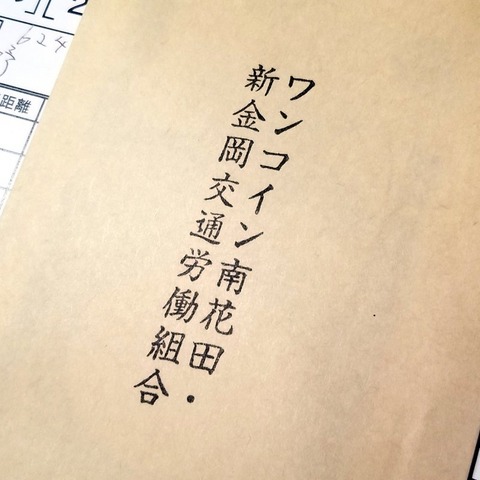 ワンコイン南花田・
新金岡交通労働組合
624
距離